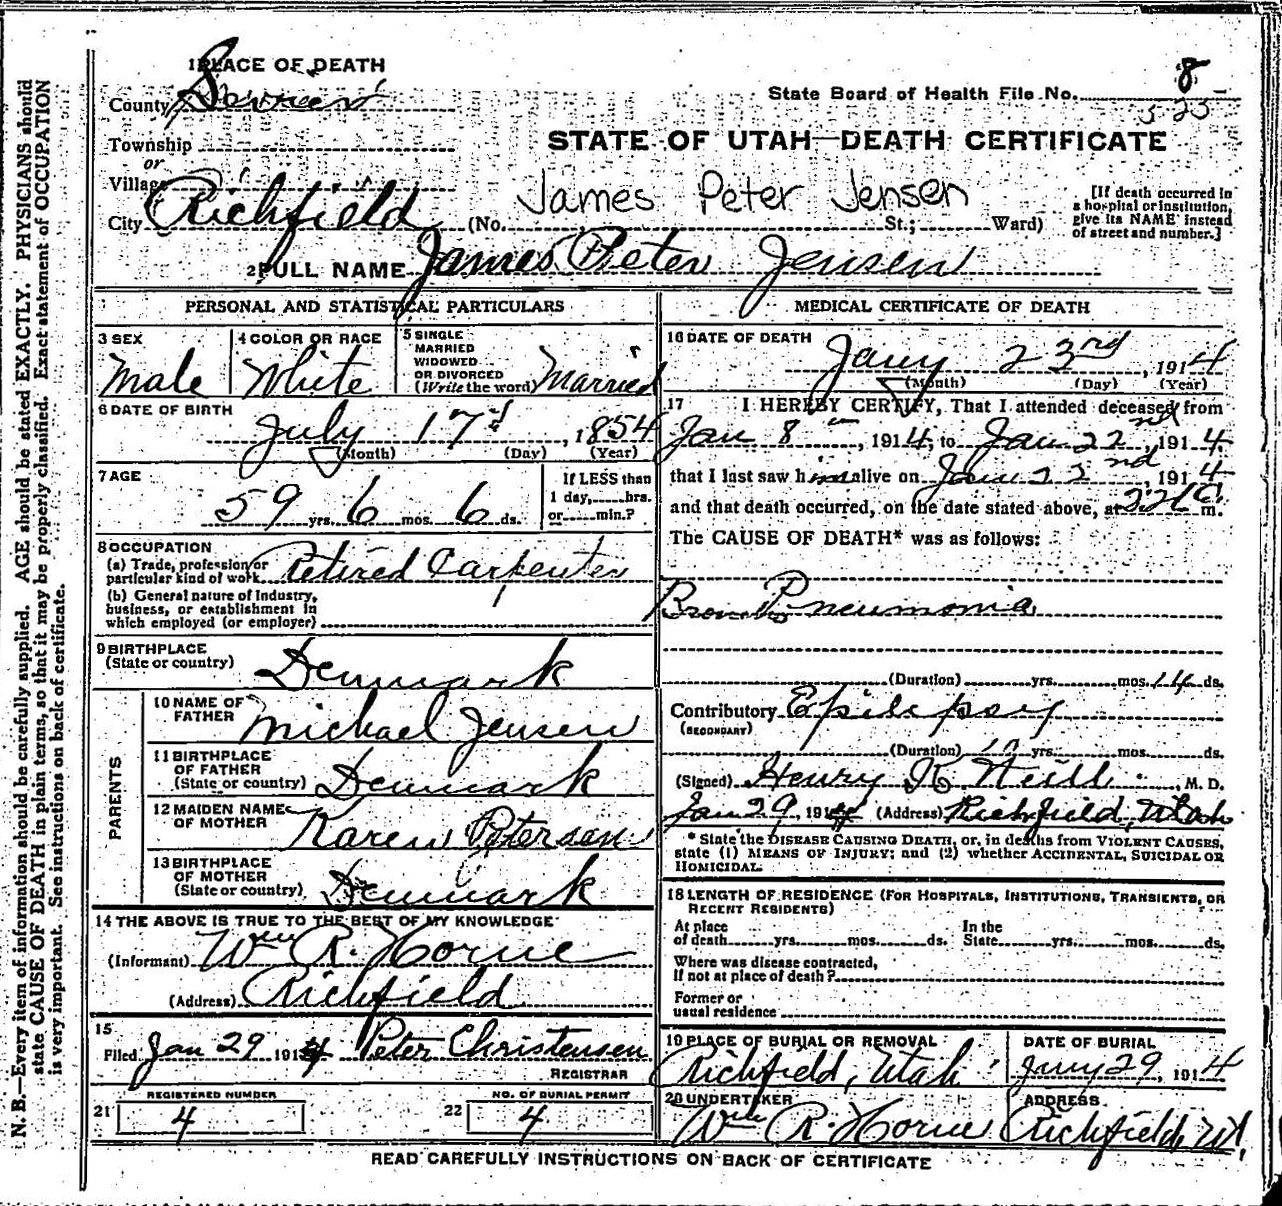 1 PLACE OF DEATH
County Sevier
Township
or
Village
City Richfield (No. St.; Ward)
State Board of Health File No. 8
525
STATE OF UTAH—DEATH CERTIFICATE
James Peter Jensen
[If death occurred in a hospital or institution, give its NAME instead of street and number.]
2 FULL NAME James Peter Jensen
PERSONAL AND STATISTICAL PARTICULARS
3 SEX
Male
4 COLOR OR RACE
White
5 SINGLE
MARRIED
WIDOWED
OR DIVORCED
(Write the word) Married
6 DATE OF BIRTH
July 17, 1854
(Month) (Day) (Year)
7 AGE
59 yrs. 6 mos. 6 ds.
If LESS than
1 day,......hrs.
or......min.?
8 OCCUPATION
(a) Trade, profession, or
particular kind of work Retired Carpenter
(b) General nature of Industry,
business, or establishment in
which employed (or employer)
9 BIRTHPLACE
(State or country) Denmark
PARENTS
10 NAME OF
FATHER Michael Jensen
11 BIRTHPLACE
OF FATHER
(State or country) Denmark
12 MAIDEN NAME
OF MOTHER Karen Petersen
13 BIRTHPLACE
OF MOTHER
(State or country) Denmark
14 THE ABOVE IS TRUE TO THE BEST OF MY KNOWLEDGE
(Informant) Wm R. Horne
(Address) Richfield
15
Filed Jan 29 1914 Peter Christensen
REGISTRAR
REGISTERED NUMBER
21 4
NO. OF BURIAL PERMIT
22 4
MEDICAL CERTIFICATE OF DEATH
16 DATE OF DEATH
Jany 23rd, 1914
(Month) (Day) (Year)
17 I HEREBY CERTIFY, That I attended deceased from
Jan 8th, 1914, to Jan 22nd, 1914
that I last saw him alive on Jan 22nd, 1914
and that death occurred, on the date stated above, at m.
The CAUSE OF DEATH* was as follows:
Broncho Pneumonia
(Duration) yrs. mos. 14 ds.
Contributory Epilepsy
(SECONDARY)
(Duration) yrs. mos. ds.
(Signed) Henry K. Neill, M. D.
Jan 29, 1914 (Address) Richfield, Utah
* State the DISEASE CAUSING DEATH, or, in deaths from VIOLENT CAUSES,
state (1) MEANS OF INJURY; and (2) whether ACCIDENTAL, SUICIDAL OR
HOMICIDAL.
18 LENGTH OF RESIDENCE (FOR HOSPITALS, INSTITUTIONS, TRANSIENTS, OR
RECENT RESIDENTS)
At place
of death......yrs.......mos.......ds.
In the
State......yrs.......mos.......ds.
Where was disease contracted,
If not at place of death?
Former or
usual residence
19 PLACE OF BURIAL OR REMOVAL
Richfield, Utah
DATE OF BURIAL
Jany 29, 1914
20 UNDERTAKER
Wm R. Horne
ADDRESS
Richfield, Ut,
READ CAREFULLY INSTRUCTIONS ON BACK OF CERTIFICATE
N. B.—Every item of information should be carefully supplied. AGE should be stated EXACTLY. PHYSICIANS should
state CAUSE OF DEATH in plain terms, so that it may be properly classified. Exact statement of OCCUPATION
is very important. See instructions on back of certificate.